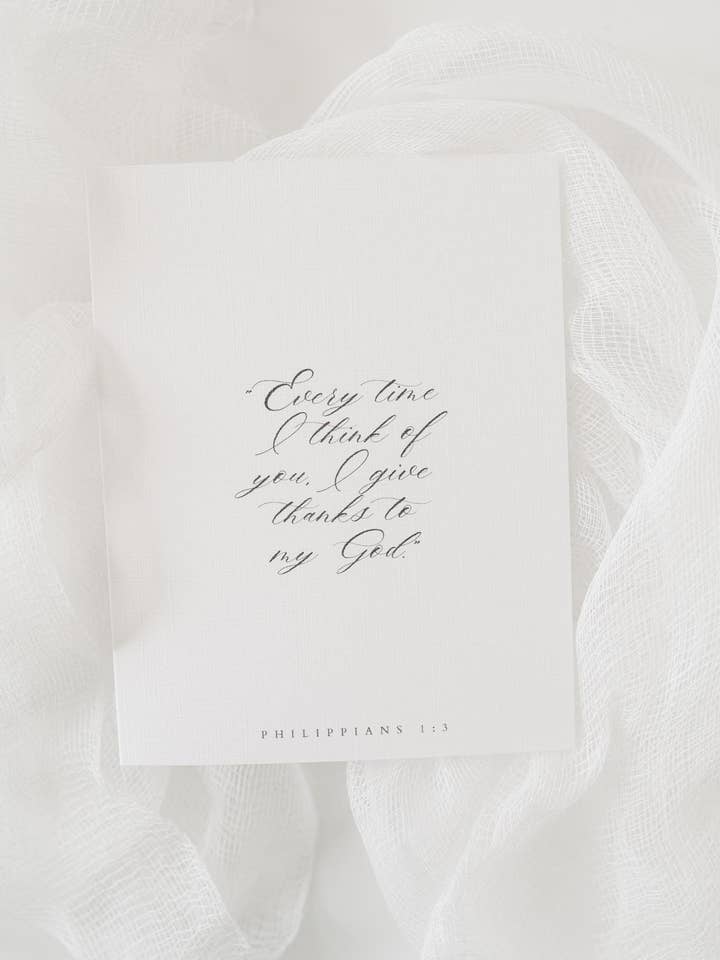 "Every time
I think of
you, I give
thanks to
my God."
PHILIPPIANS 1:3